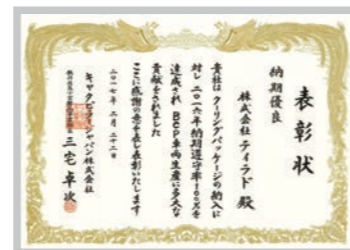 表彰状
納期優良
株式会社ティラド殿
貴社はクーリングパッケージの納入に
対し二〇一六年納期遵守率100%を
達成され BCP車両生産に多大な
貢献をされました
ここに感謝の意を表し表彰いたします
二〇一七年 二月 二十二日
キャタピラージャパン株式会社
三宅卓次